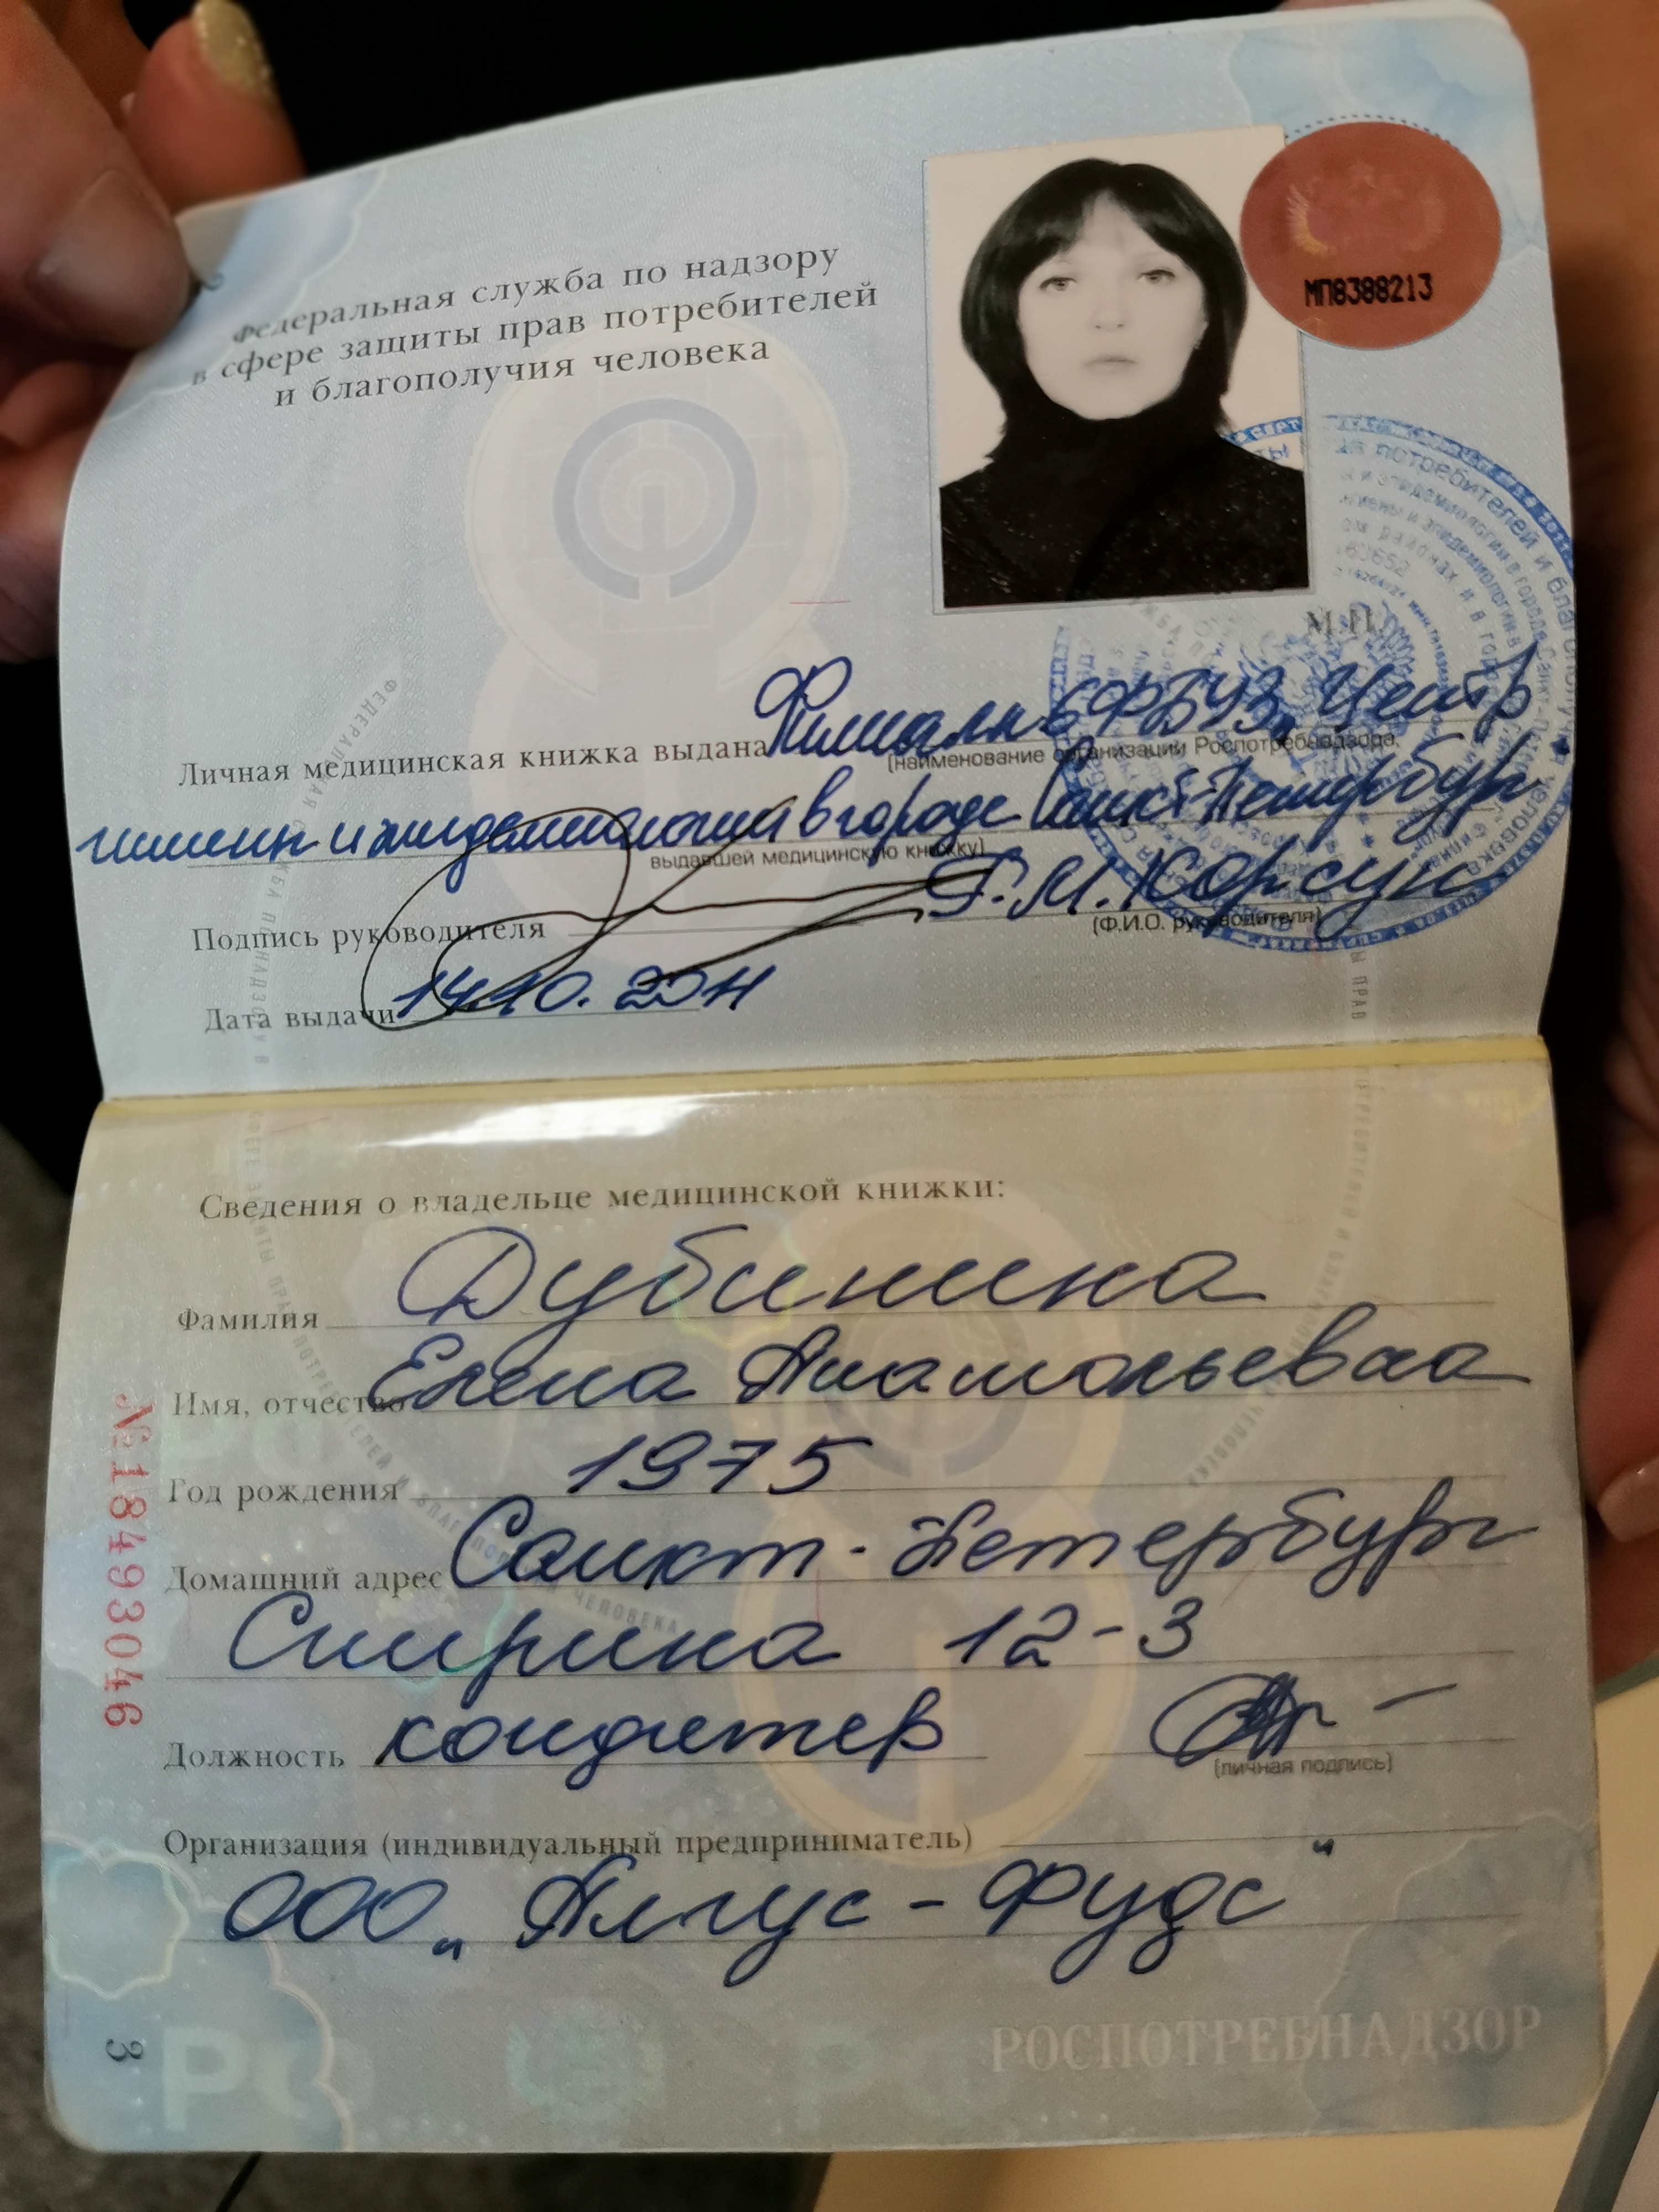 Федеральная служба по надзору
в сфере защиты прав потребителей
и благополучия человека
МП8388213
М.П.
Личная медицинская книжка выдана Филиалом ФБУЗ „Центр
(наименование организации Роспотребнадзора,
гигиены и эпидемиологии в городе Санкт-Петербург
выдавшей медицинскую книжку)
Подпись руководителя Г.М. Корсун
(Ф.И.О. руководителя)
Дата выдачи 14.10.2011
Сведения о владельце медицинской книжки:
Фамилия Дубинина
Имя, отчество Елена Анатольевна
Год рождения 1975
Домашний адрес Санкт-Петербург
12-3
Должность кондитер
(личная подпись)
Организация (индивидуальный предприниматель)
ООО „Аргус-Фудс"
№18493046
3
РОСПОТРЕБНАДЗОР